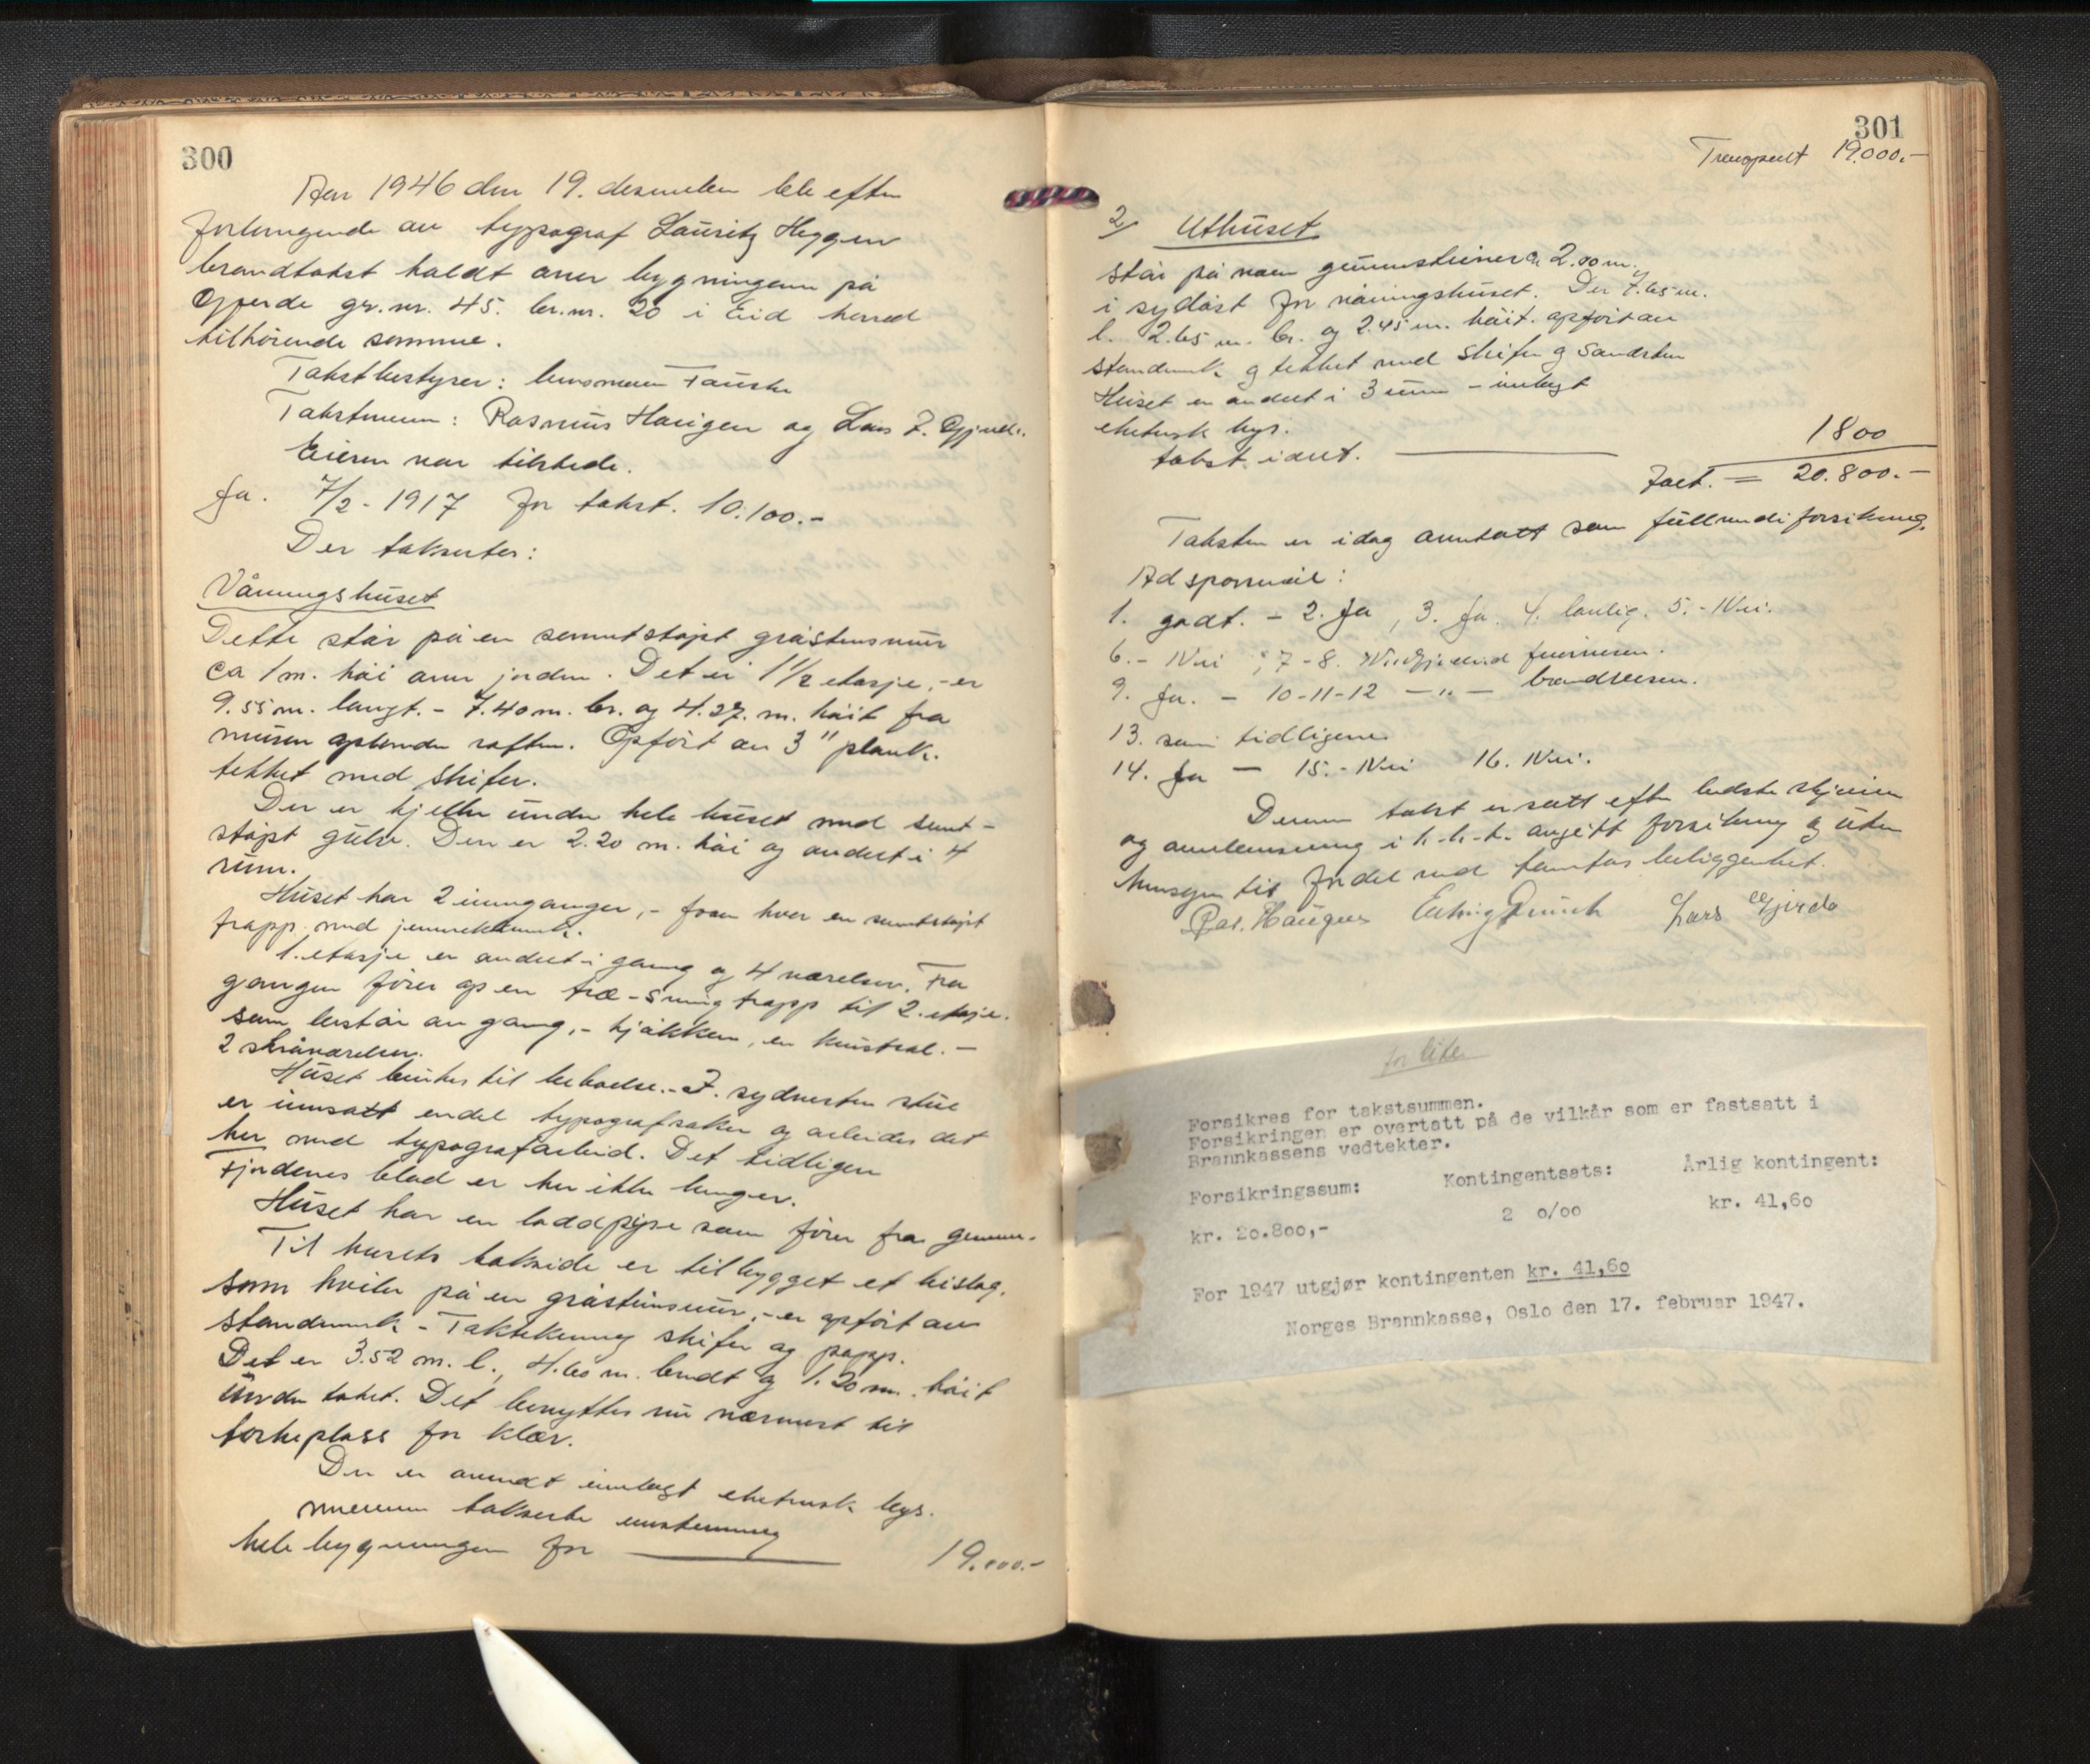 300
Aar 1946 den 19. desember ble efter
forlangende av typograf Lauritz Heggen
brandtakst holdt over bygningene på
Gjerde gr.nr. 45. br.nr. 20 i Eid herred
tilhörende samme.
Takstbestyrer: lensmann
Takstmenn: Rasmus Haugen og Lars J. Gjerde.
Eieren var tilstede.
Fa. 7/2 - 1917 for takst. 10.100.-
Der takseres:
Våningshuset
Dette står på en sementstøpt gråstensmur
ca 1 m. höi over jorden. Det er 1 1/2 etasje, - er
9.55 m. langt. - 7.40 m. br. og 4.27. m. höit fra
muren opunder raften. Opfört av 3" plank.
tekket med skifer.
Der er kjeller under hele huset med sement-
støpt gulv. Den er 2.20 m. höi og andelt i 4
rum.
Huset har 2 innganger, - foran hver en sementstøpt
trapp med jernrekkverk.
1. etasje er andelt i gang og 4 værelser. Fra
gangen förer op en træ-svingtrapp til 2. etasje.
som består av gang, - kjökken, en kvistsal. -
2 skråværelser.
Huset brukes til beboelse. - I. sydvestre stue
er innsatt endel typografsaker og arbeides det
her med typografarbeid. Det tidligere
Fjordenes blad er her ikke lenger.
Huset har en loddpipe som förer fra grunnen.
Til husets bakside er tilbygget et bislag.
som hviler på en gråsteinsmur, - er opfört av
standverk - Taktekning skifer og papp.
Det er 3.52 m. l., 4.60 m. bredt og 1.20 m. höit
under taket. Det benyttes nu nærmest til
törkeplass for klær.
Der er overalt innlagt elektrisk lys.
mennene takserte enstemmig
hele bygningen for 19.000.-
301
Transport 19.000.-
2/ Uthuset
står på noen grunnsteiner ca 2.00 m.
i sydöst for våningshuset. Der 7.65 m.
l. 2.65 m. br. og 2.45 m. höit. opfört av
standverk og tekket med skifer og Sandsten
Huset er andelt i 3 rum - innlagt
elektrisk lys.
takst. idet. 1800
Ialt. = 20.800.-
Taksten er idag antatt som fullverdiforsikring.
Ad spørsmål:
1. godt. - 2. Ja, 3. Ja. 4. lovlig. 5. - Nei.
6. - Nei; 7-8. Vedgjelend feiervesen.
9. Ja. - 10-11-12 - " - brandvesen.
13. som tidligere
14. Ja - 15. - Nei 16. Nei.
Denne takst er satt efter bedste skjønn
og overbevisning i h.h.t. avgitt forsikring og uten
hensyn til fordel ved tomtas beliggenhet.
Ras. Haugen Lars Gjerde
for liten
Forsikres for takstsummen.
Forsikringen er overtatt på de vilkår som er fastsatt i
Brannkassens vedtekter.
Forsikringssum: Kontingentsats: Årlig kontingent:
kr. 20.800,- 2 o/oo kr. 41,60
For 1947 utgjør kontingenten kr. 41,60
Norges Brannkasse, Oslo den 17. februar 1947.